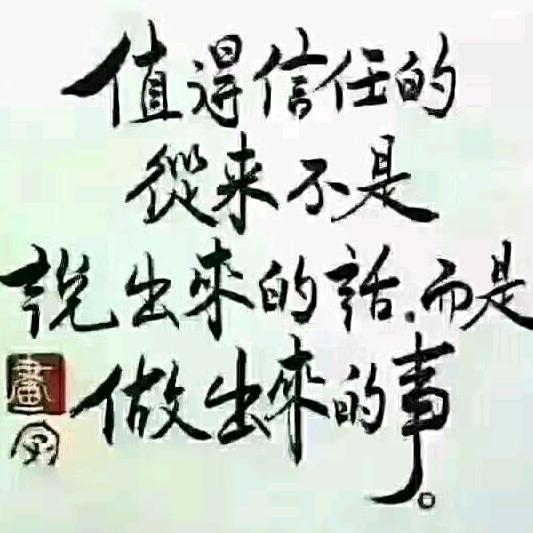 值得信任的
從来不是
說出來的話，而是
做出來的事。
畫
字